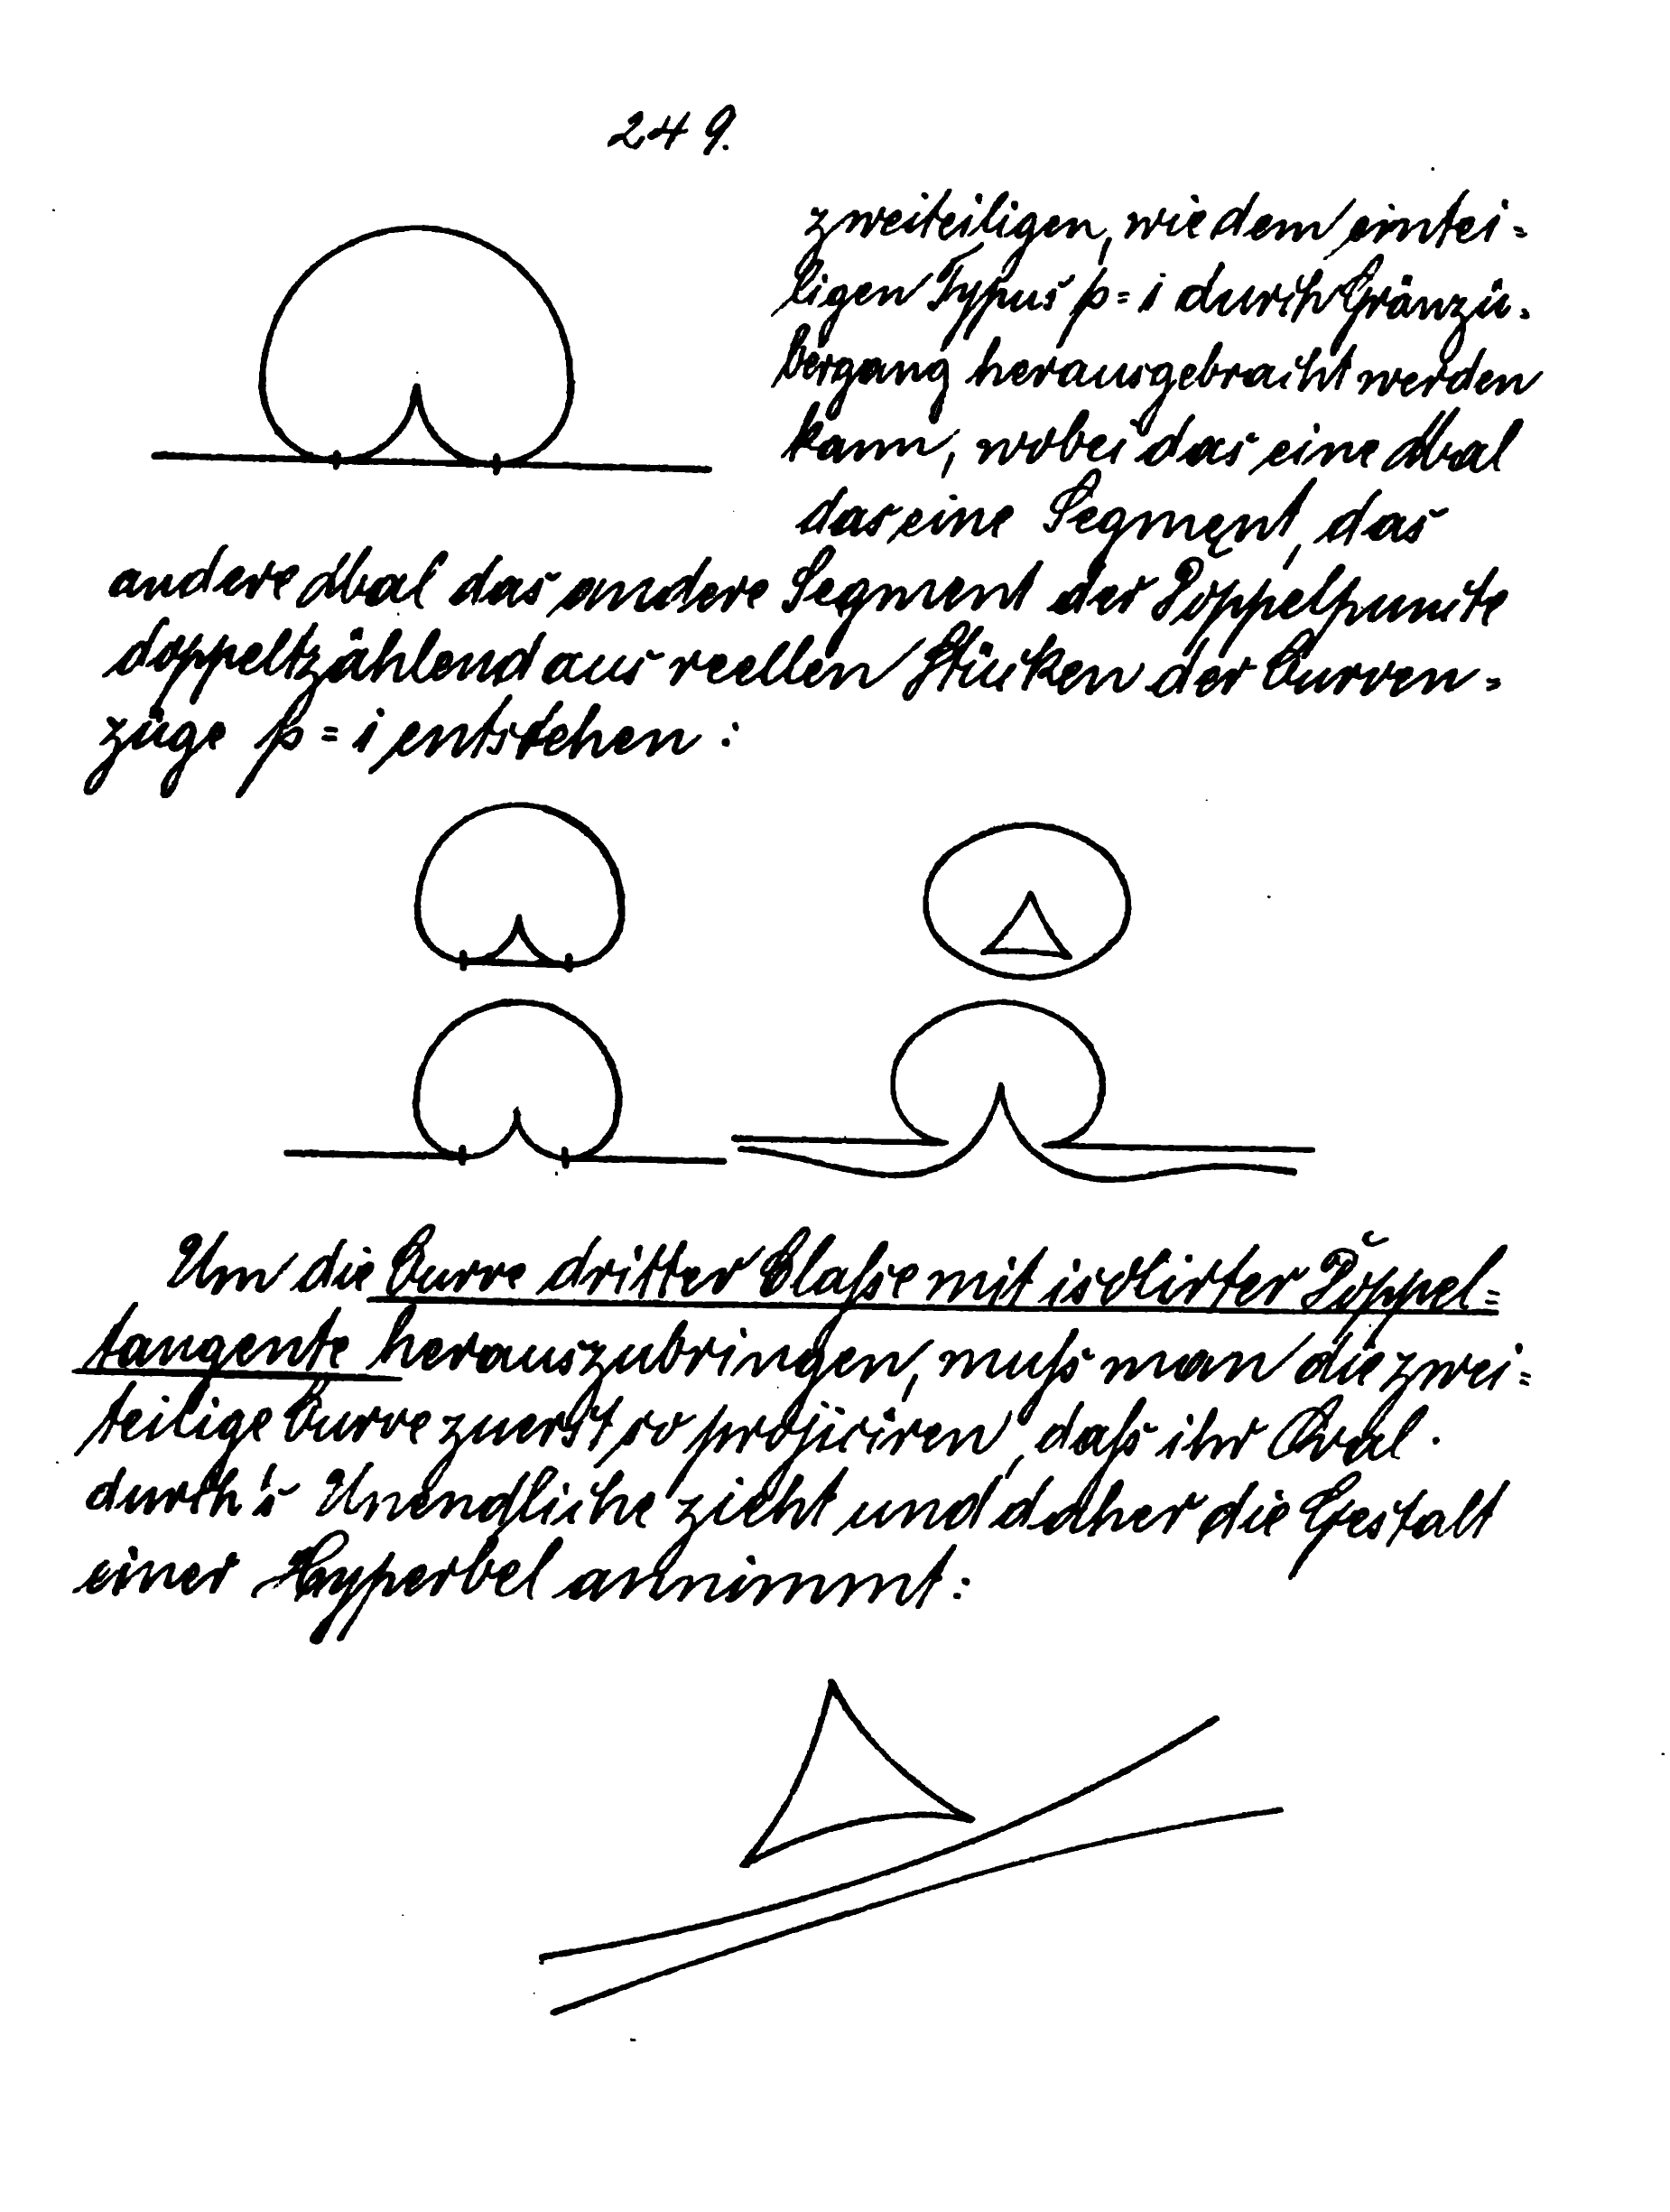 249.
zweiteiligen, wie dem eintei-
ligen Typus p = 1 durch Gränzü-
bergang herausgebracht werden
kann, wobei das eine Mal
das eine Segment, das
andere Mal das andere Segment der Doppelpuncte
doppeltzählend aus reellen Stücken der Curven-
züge p = 1 entstehen:
Um die Curve dritter Classe mit isolirter Doppel-
tangente herauszubringen, muss man die zwei-
teilige Curve zuerst so projiciren, dass ihr Oval
durch's Unendliche zieht und daher die Gestalt
einer Hyperbel annimmt: